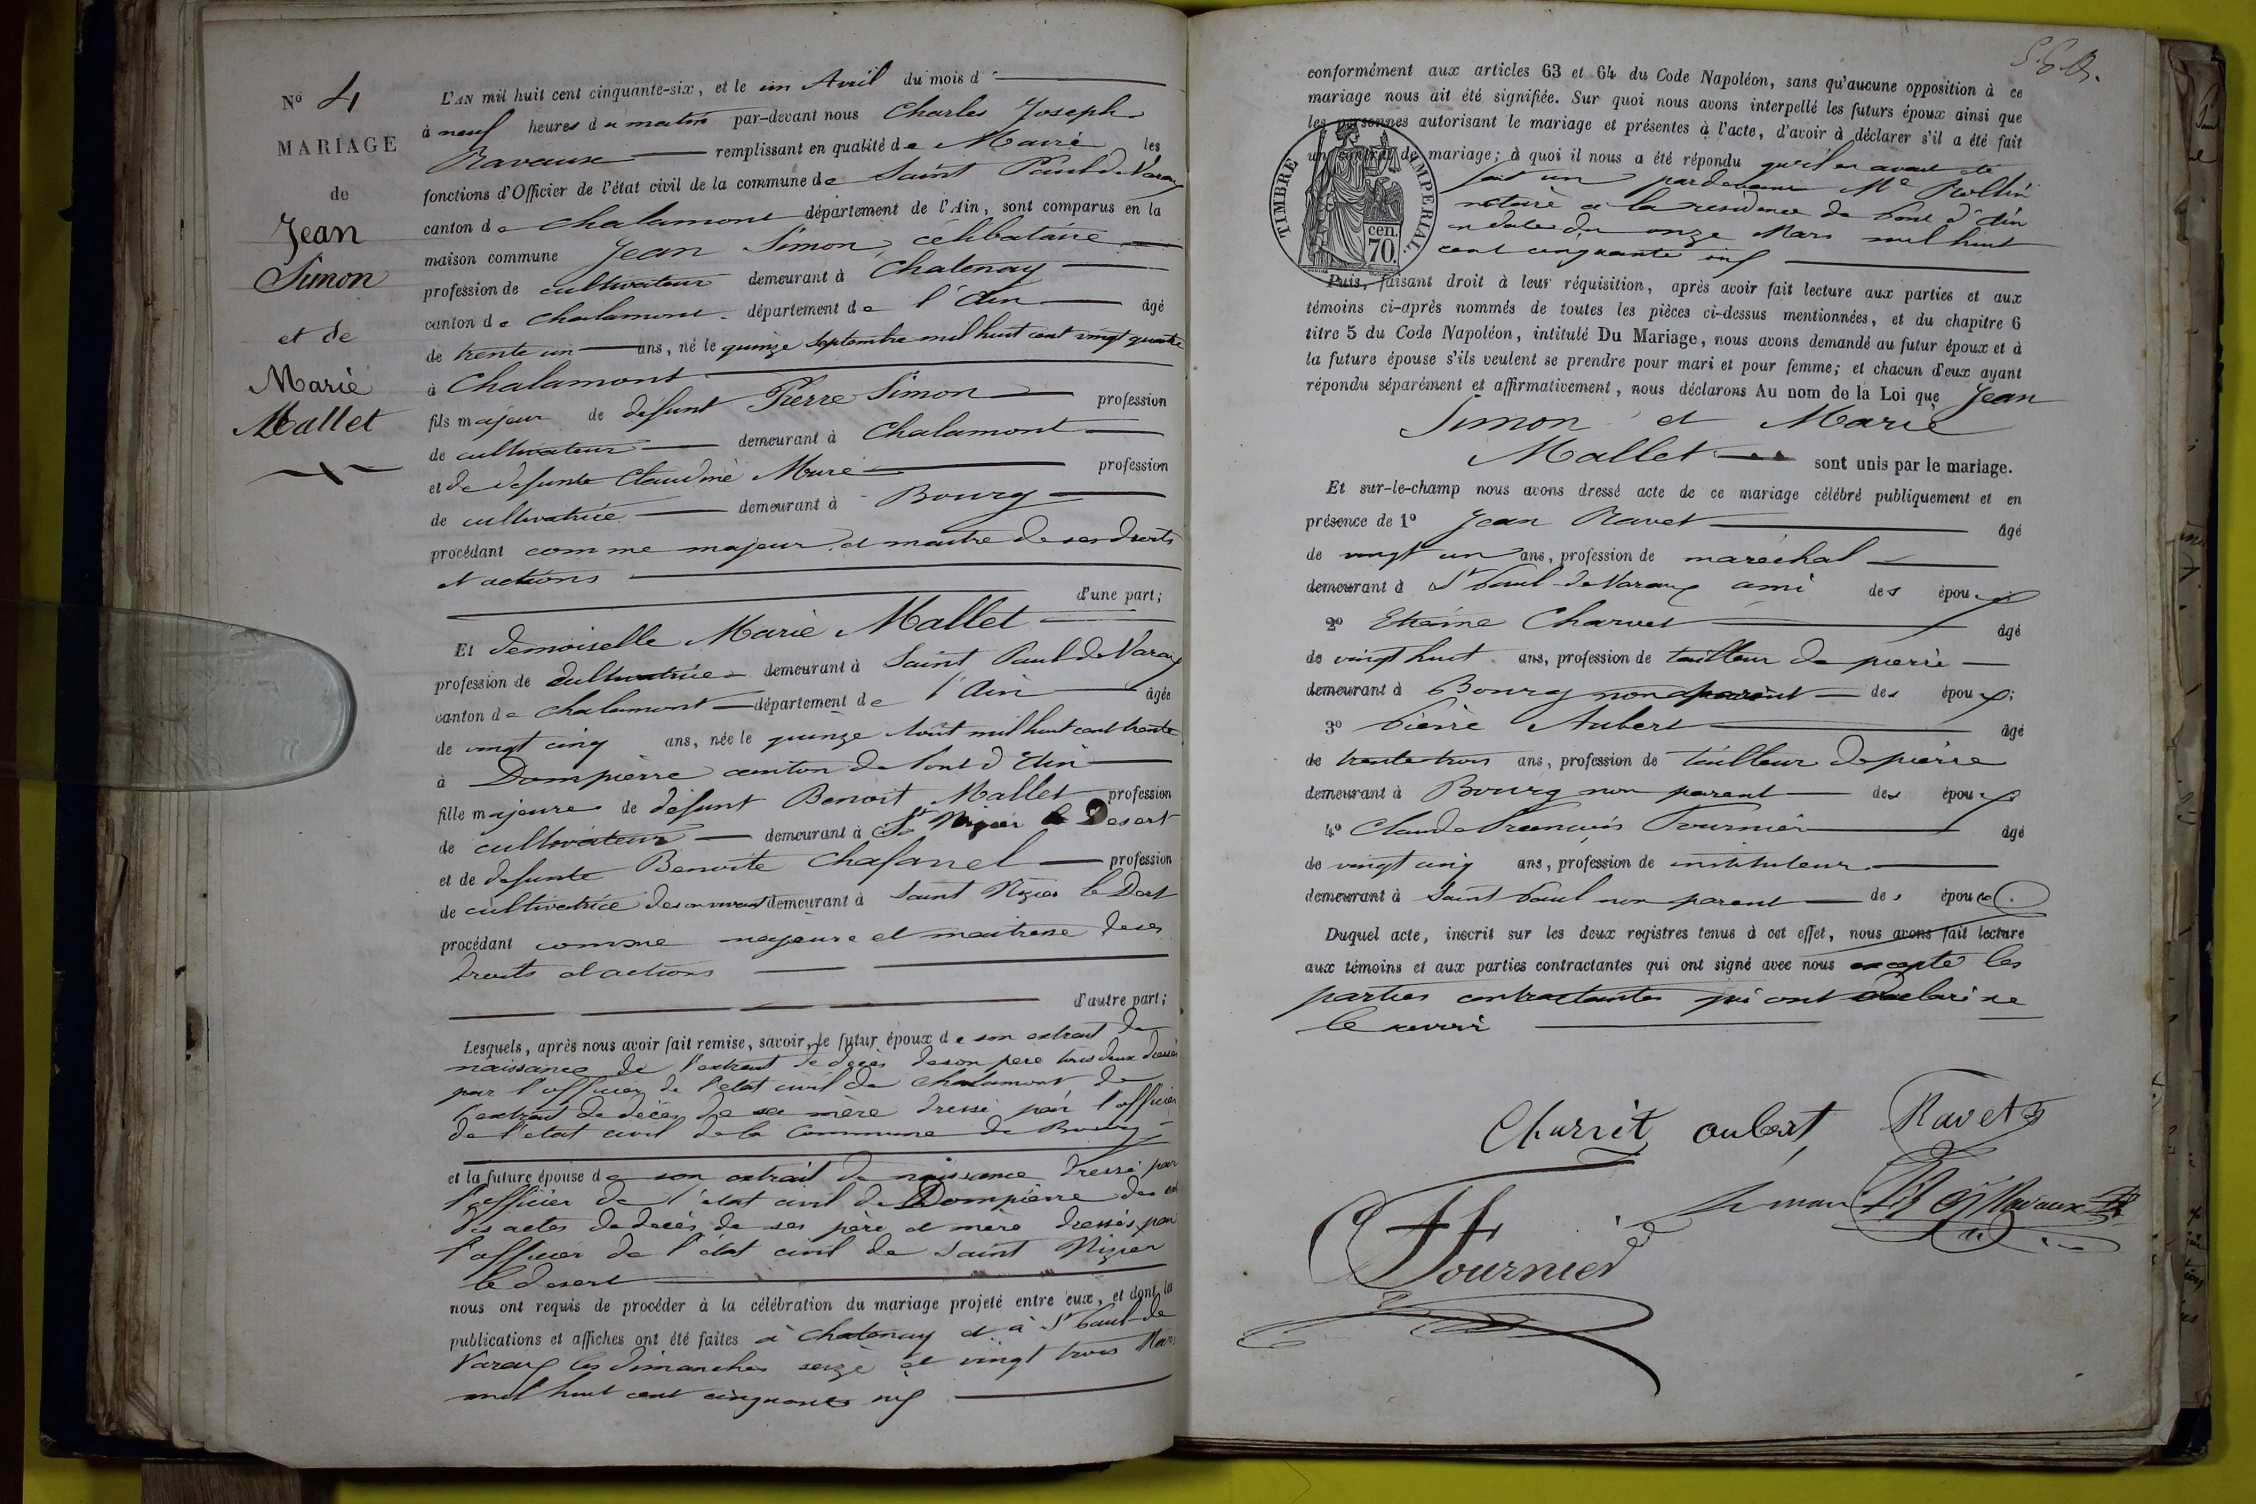 Nº 4
MARIAGE
de
Jean
Simon
et de
Marie
Mallet
L'AN mil huit cent cinquante-six, et le un Avril du mois d
à neuf heures du matin par-devant nous Charles Joseph
Ravaux remplissant en qualité de Maire les
fonctions d'Officier de l'état civil de la commune de Saint Paul de Varax
canton de Chalamont département de l'Ain, sont comparus en la
maison commune Jean Simon, célibataire
profession de cultivateur demeurant à Chatenay
canton de Chalamont département de l'Ain âgé
de trente un ans, né le quinze Septembre mil huit cent vingt quatre
à Chalamont
fils majeur de défunt Pierre Simon profession
de cultivateur demeurant à Chalamont
et de défunte Claudine Mure profession
de cultivatrice demeurant à Bourg
procédant comme majeur et maitre de ses droits
et actions
d'une part;
Et demoiselle Marie Mallet
profession de cultivatrice demeurant à Saint Paul de Varax
canton de Chalamont département de l'Ain âgée
de vingt cinq ans, née le quinze Aout mil huit cent trente
à Dompierre canton de Pont d'Ain
fille majeure de défunt Benoit Mallet profession
de cultivateur demeurant à St Nizier le Desert
et de défunte Benoite Chafanel profession
de cultivatrice de son vivant demeurant à Saint Nizier le Dert
procédant comme majeure et maitresse de ses
droits et actions
d'autre part;
Lesquels, après nous avoir fait remise, savoir, le futur époux de son extrait de
naissance de l'extrait de décès de son père tous deux dressés
par l'officier de l'état civil de Chalamont de
l'extrait de décès de sa mère dressé par l'officier
de l'état civil de la Commune de Bourg
et la future épouse de son extrait de naissance dressé par
l'officier de l'état civil de Dompierre des
des actes de décès de ses père et mère dressés par
l'officier de l'état civil de Saint Nizier
le desert
nous ont requis de procéder à la célébration du mariage projeté entre eux, et dont la
publications et affiches ont été faites à Chatenay et à St Paul de
Varax les dimanches seize et vingt trois Mars
mil huit cent cinquante six
conformément aux articles 63 et 64 du Code Napoléon, sans qu'aucune opposition à ce
mariage nous ait été signifiée. Sur quoi nous avons interpellé les futurs époux ainsi que
les personnes autorisant le mariage et présentes à l'acte, d'avoir à déclarer s'il a été fait
un contrat de mariage; à quoi il nous a été répondu qu'il en avait été
fait un pardevant Me Rollin
notaire à la résidence de Pont d'Ain
en date du onze Mars mil huit
cent cinquante six
TIMBRE IMPERIAL.
cen.
70.
Puis, faisant droit à leur réquisition, après avoir fait lecture aux parties et aux
témoins ci-après nommés de toutes les pièces ci-dessus mentionnées, et du chapitre 6
titre 5 du Code Napoléon, intitulé Du Mariage, nous avons demandé au futur époux et à
la future épouse s'ils veulent se prendre pour mari et pour femme; et chacun d'eux ayant
répondu séparément et affirmativement, nous déclarons Au nom de la Loi que Jean
Simon et Marie
Mallet sont unis par le mariage.
Et sur-le-champ nous avons dressé acte de ce mariage célébré publiquement et en
présence de 1º Jean Ravet âgé
de vingt un ans, profession de maréchal
demeurant à St Paul de Varax ami des époux
2º Etienne Charvet âgé
de vingt huit ans, profession de tailleur de pierre
demeurant à Bourg non parent des époux;
3º Pierre Aubert âgé
de trente trois ans, profession de tailleur de pierre
demeurant à Bourg non parent des époux
4º Claude Francois Fournier âgé
de vingt cinq ans, profession de instituteur
demeurant à Saint Paul non parent des époux.
Duquel acte, inscrit sur les deux registres tenus à cet effet, nous avons fait lecture
aux témoins et aux parties contractantes qui ont signé avec nous excepté les
parties contractantes qui ont déclaré ne
le savoir
Charvet aubert Ravet
Le maire Ravaux
Fournier